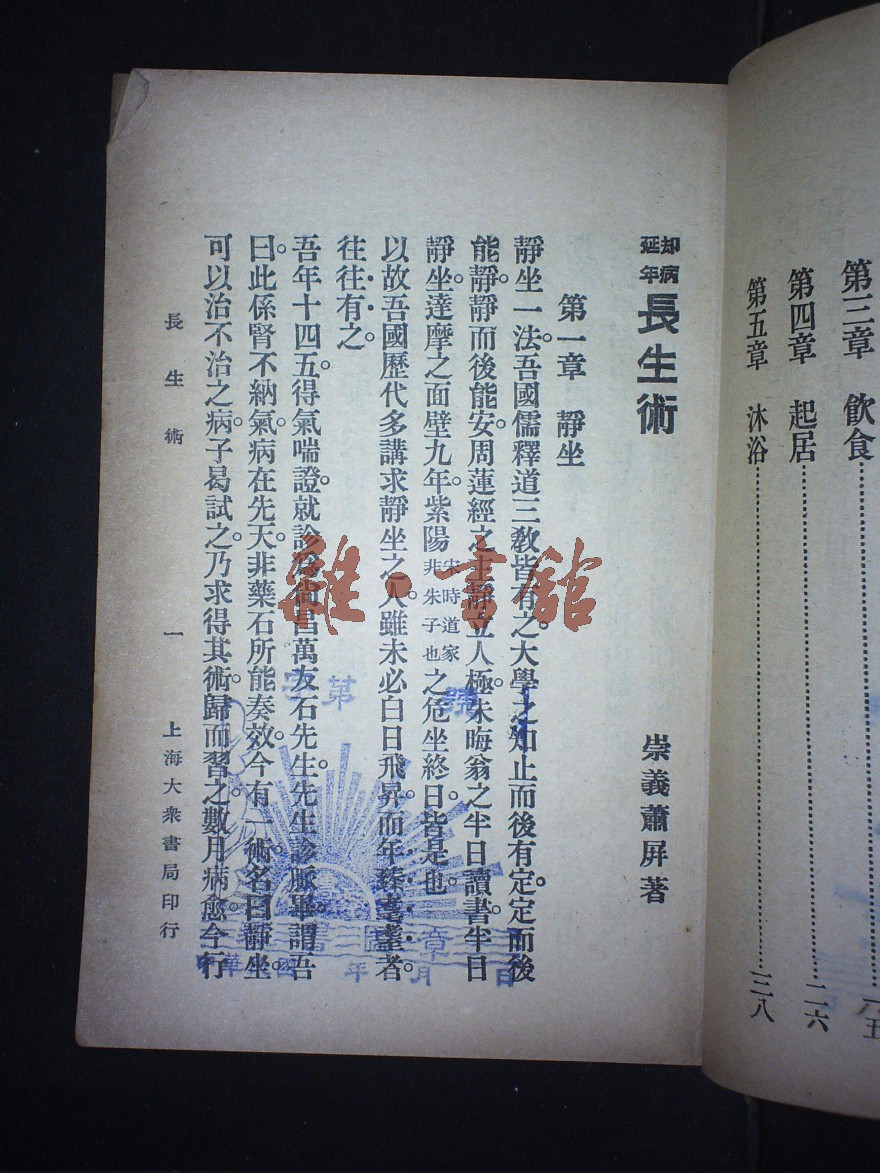 第三章　飲食………………一五
第四章　起居………………二六
第五章　沐浴………………三八
却病延年 長生術
崇義蕭屏著
第一章　靜坐
靜坐一法。吾國儒釋道三教皆有之。大學之知止而後有定。定而後
能靜。靜而後能安。周蓮經之主靜立人極。朱晦翁之半日讀書。半日
靜坐。達摩之面壁九年。紫陽宋時道家非朱子也之危坐終日。皆是也。
以故吾國歷代多講求靜坐之人。雖未必白日飛昇。而年臻耄耋者。
往往有之。
吾年十四五。得氣喘證。就診 昌萬友石先生。先生診脈畢。謂吾
曰。此係腎不納氣。病在先天。非藥石所能奏效。今有一術。名曰靜坐。
可以治不治之病。子曷試之。乃求得其術。歸而習之。數月病愈。今行
長生術
一
上海大衆書局印行
雜·書館
第 號
年 月 日